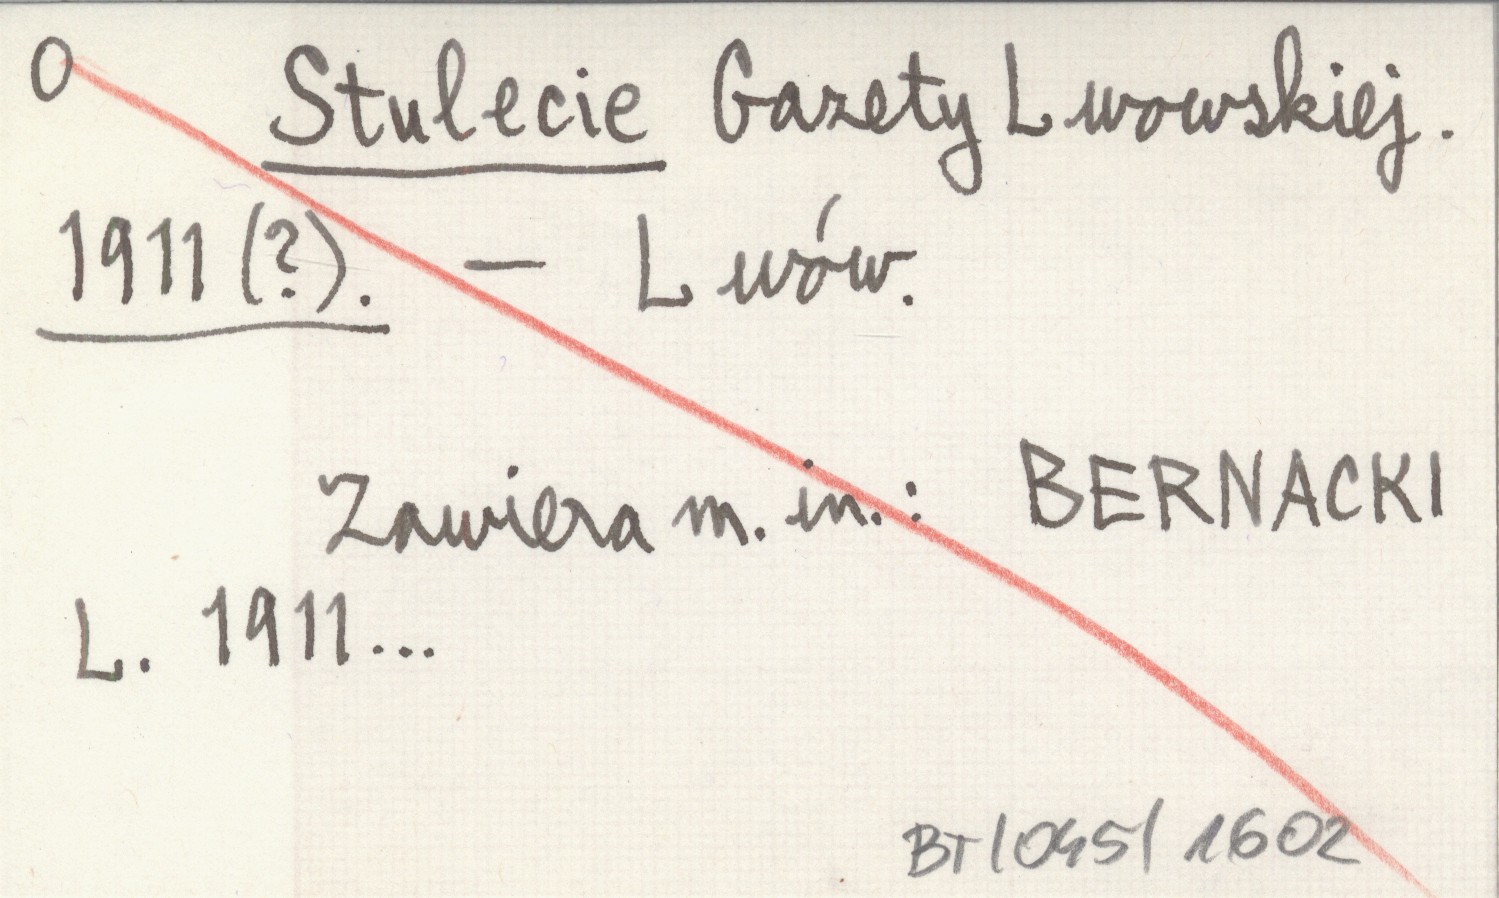 O Stulecie Gazety Lwowskiej.
1911 (?). — Lwów.
Zawiera m. in.: BERNACKI
L. 1911...
BT/045/1602